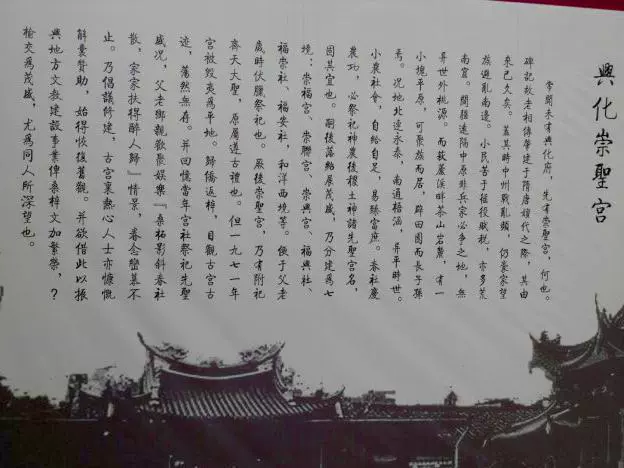 興化崇聖宮
常聞未有興化府，先有崇聖宮，何也。
碑記故老相傳肇建于隋唐嬗代之際，其由
來已久矣。蓋其時中州戰亂頻，仍豪家望
族避亂南邊。小民苦于徭役賦稅，亦多荒
南竄。閩疆遠隔中原非兵家必爭之地，無
異世外桃源。而荻蘆溪畔茶山岩麓，有一
小塊平原，可聚族而居，辟田園而長子孫
焉。況地北連永泰，南通梧涵，昇平時世。
小農社會，自給自足，易臻富庶。春社慶
農功，必祭祀神農後稷土神諸先聖宮名，
因其宜也。嗣後落絡展茂盛，乃分建為七
境：崇福宮、崇聯宮、崇興宮、福興社、
福崇社、福安社，和洋西境等。便于父老
歲時伏臘祭祀也。厥後崇聖宮，乃有附祀
齊天大聖，原屬遵古禮也。但一九七一年
宮被毀夷為平地。歸僑返梓，目觀古宮古
迹，蕩然無存。并回憶當年宮社祭祀先聖
盛況，父老鄉親歡聚娛樂『桑柘影斜春社
散，家家扶得醉人歸』情景，眷念巒慕不
止。乃倡議修建，古宮裏熱心人士亦慷慨
解囊贊助，始得恢復舊觀。并欲借此以振
興地方文教建設事業俾桑梓文加繁榮，？
榆交為茂盛，尤為同人所深望也。